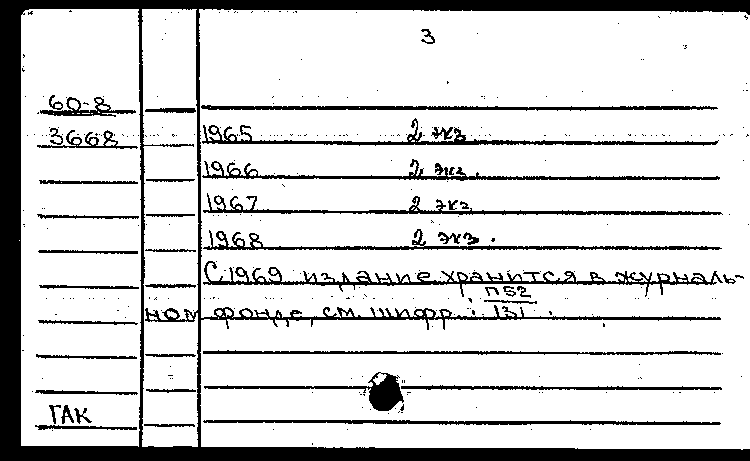 3
60-8
3668
1965 2 экз.
1966 2 экз.
1967 2 экз.
1968 2 экз.
С 1969 издание хранится в журналь-
ном фонде, см. шифр: П52
131.
ГАК